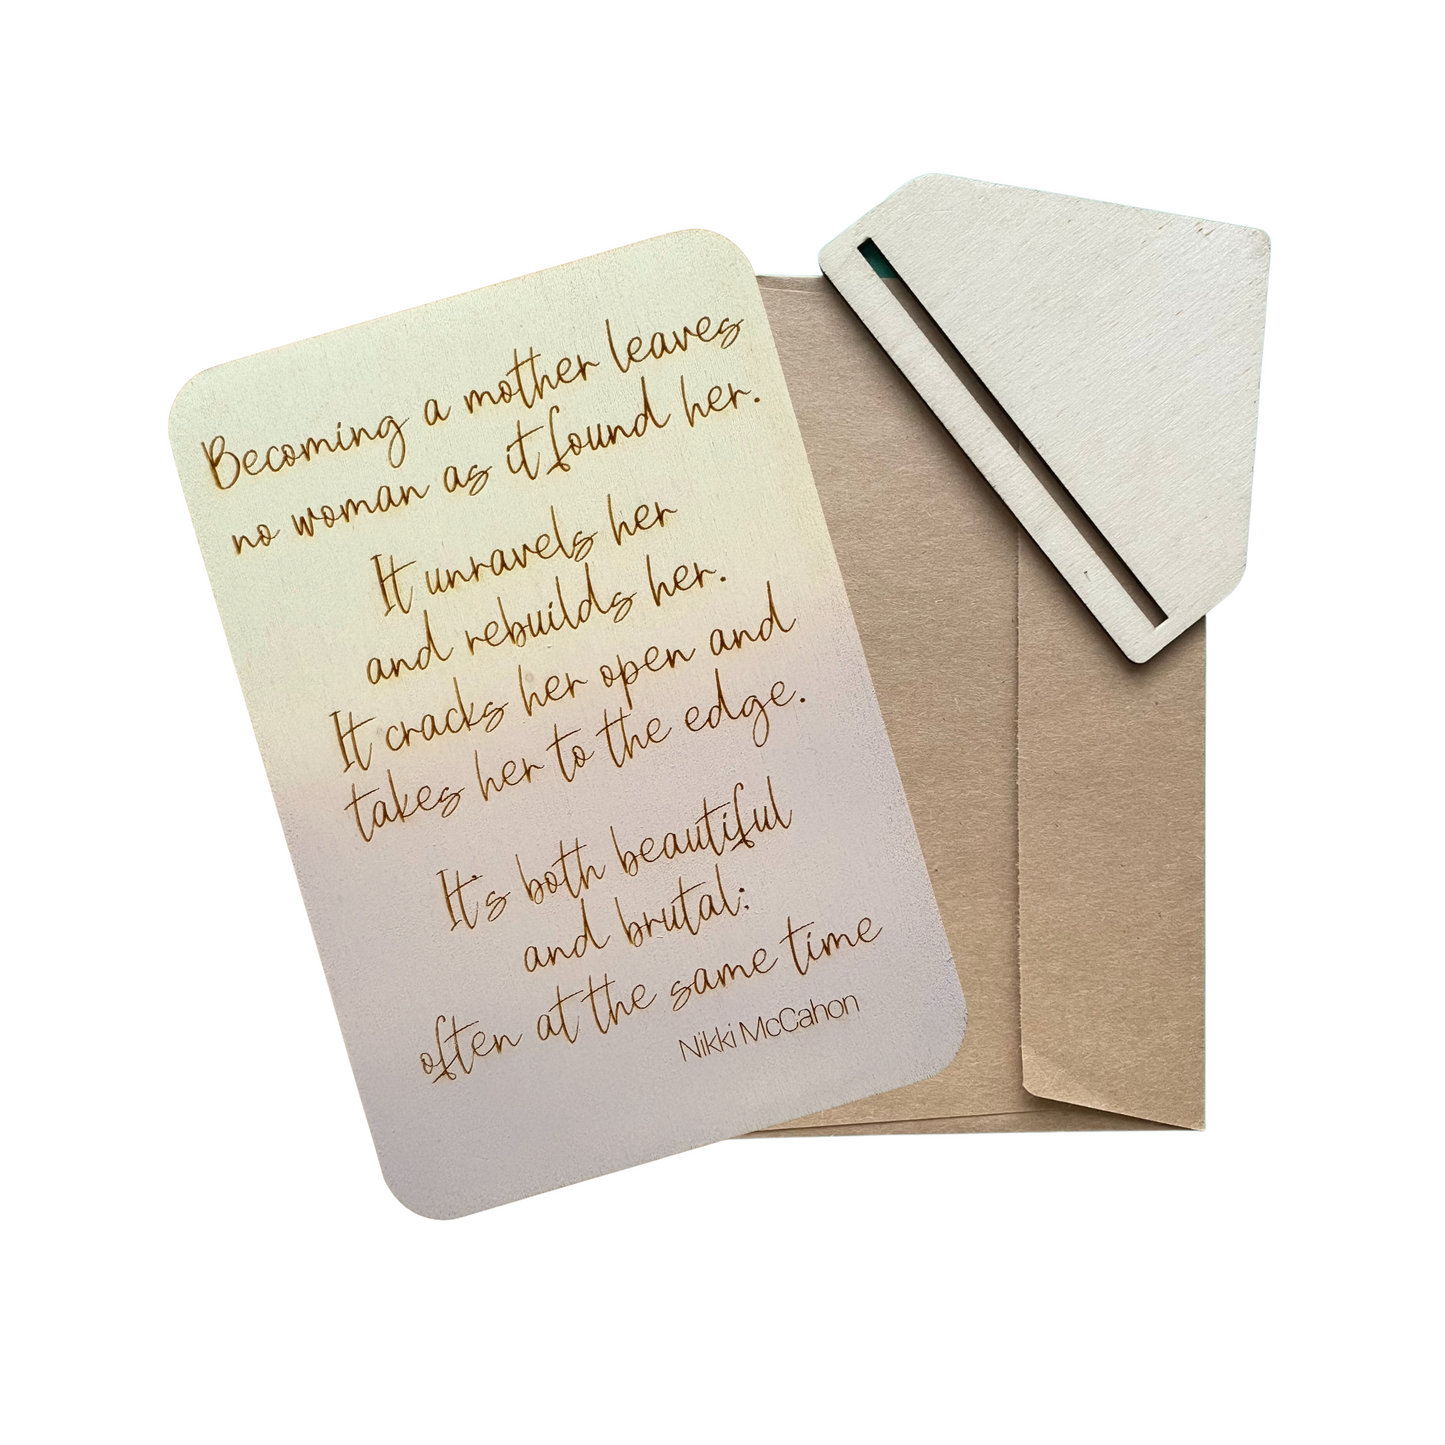 Becoming a mother leaves
no woman as it found her.
It unravels her
and rebuilds her.
It cracks her open and
takes her to the edge.
It's both beautiful
and brutal:
often at the same time
Nikki McCahon